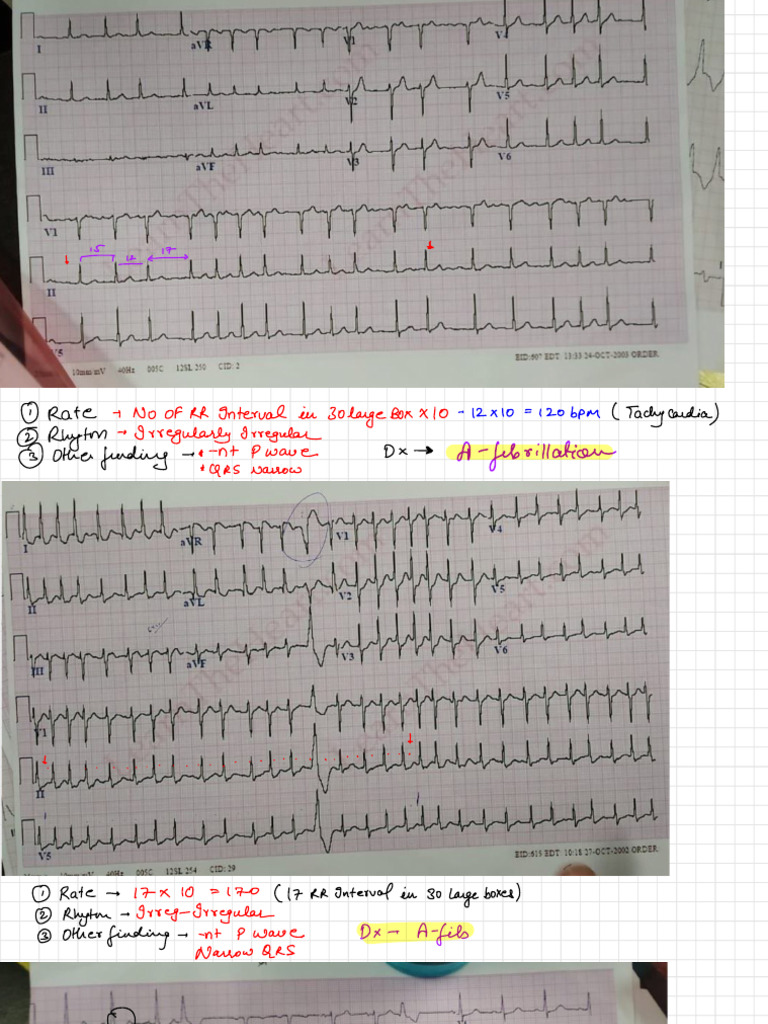 I aVR V1 V4
II aVL V2 V5
III aVF V3 V6
V1
15 12 17
II
V5
10mm/mV 40Hz 005C 12SL 250 CID: 2 EID:607 EDT: 13:33 24-OCT-2003 ORDER
① Rate → No OF RR Interval in 30 large Box x 10 - 12 x 10 = 120 bpm ( Tachycardia)
② Rhytm → Irregularly Irregular
③ Other finding → • -nt P wave Dx → A-fibrillation
• QRS Narrow
I aVR V1 V4
II aVL V2 V5
III aVF V3 V6
V1
II
V5
40Hz 005C 12SL 254 CID: 29 EID:615 EDT: 10:18 27-OCT-2002 ORDER
① Rate → 17 x 10 = 170 ( 17 RR Interval in 30 Large boxes)
② Rhytm → Irreg-Irregular
③ Other finding → -nt P wave Dx → A-fib
Narrow QRS